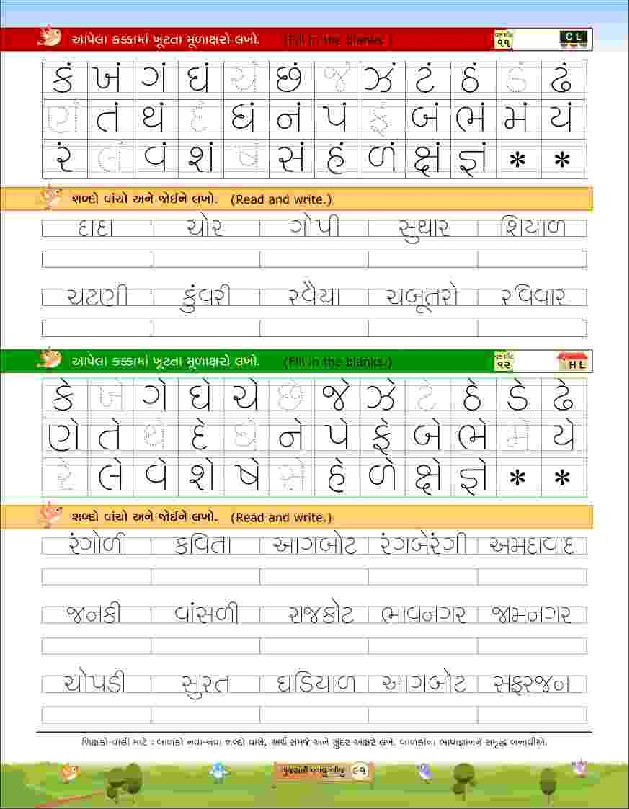 આપેલા કક્કામાં ખૂટતા મૂળાક્ષરો લખો. (Fill in the blanks.) ૧૧ CL
કં ખં ગં ઘં ચં છં જં ઝં ટં ઠં ડં ઢં
ણં તં થં દં ધં નં પં ફં બં ભં મં યં
રં લં વં શં ષં સં હં ળં ક્ષં જ્ઞં * *
શબ્દો વાંચો અને જોઈને લખો. (Read and write.)
દાદા ચોર ગોપી સુથાર શિયાળ
ચટણી કુંવરી રવૈયા ચબૂતરો રવિવાર
આપેલા કક્કામાં ખૂટતા મૂળાક્ષરો લખો. (Fill in the blanks.) ૧૨ HL
કે ખે ગે ઘે ચે છે જે ઝે ટે ઠે ડે ઢે
ણે તે થે દે ધે ને પે ફે બે ભે મે યે
રે લે વે શે ષે સે હે ળે ક્ષે જ્ઞે * *
શબ્દો વાંચો અને જોઈને લખો. (Read and write.)
રંગોળી કવિતા આગબોટ રંગબેરંગી અમદાવાદ
જાનકી વાંસળી રાજકોટ ભાવનગર જામનગર
ચોપડી સુરત ઘડિયાળ આગબોટ સફરજન
શિક્ષકો-વાલી માટે : બાળકો નવા-નવા શબ્દો વાંચે, અર્થ સમજે અને સુંદર અક્ષરે લખે. બાળકોના ભાષાજ્ઞાનને સમૃદ્ધ બનાવીએ.